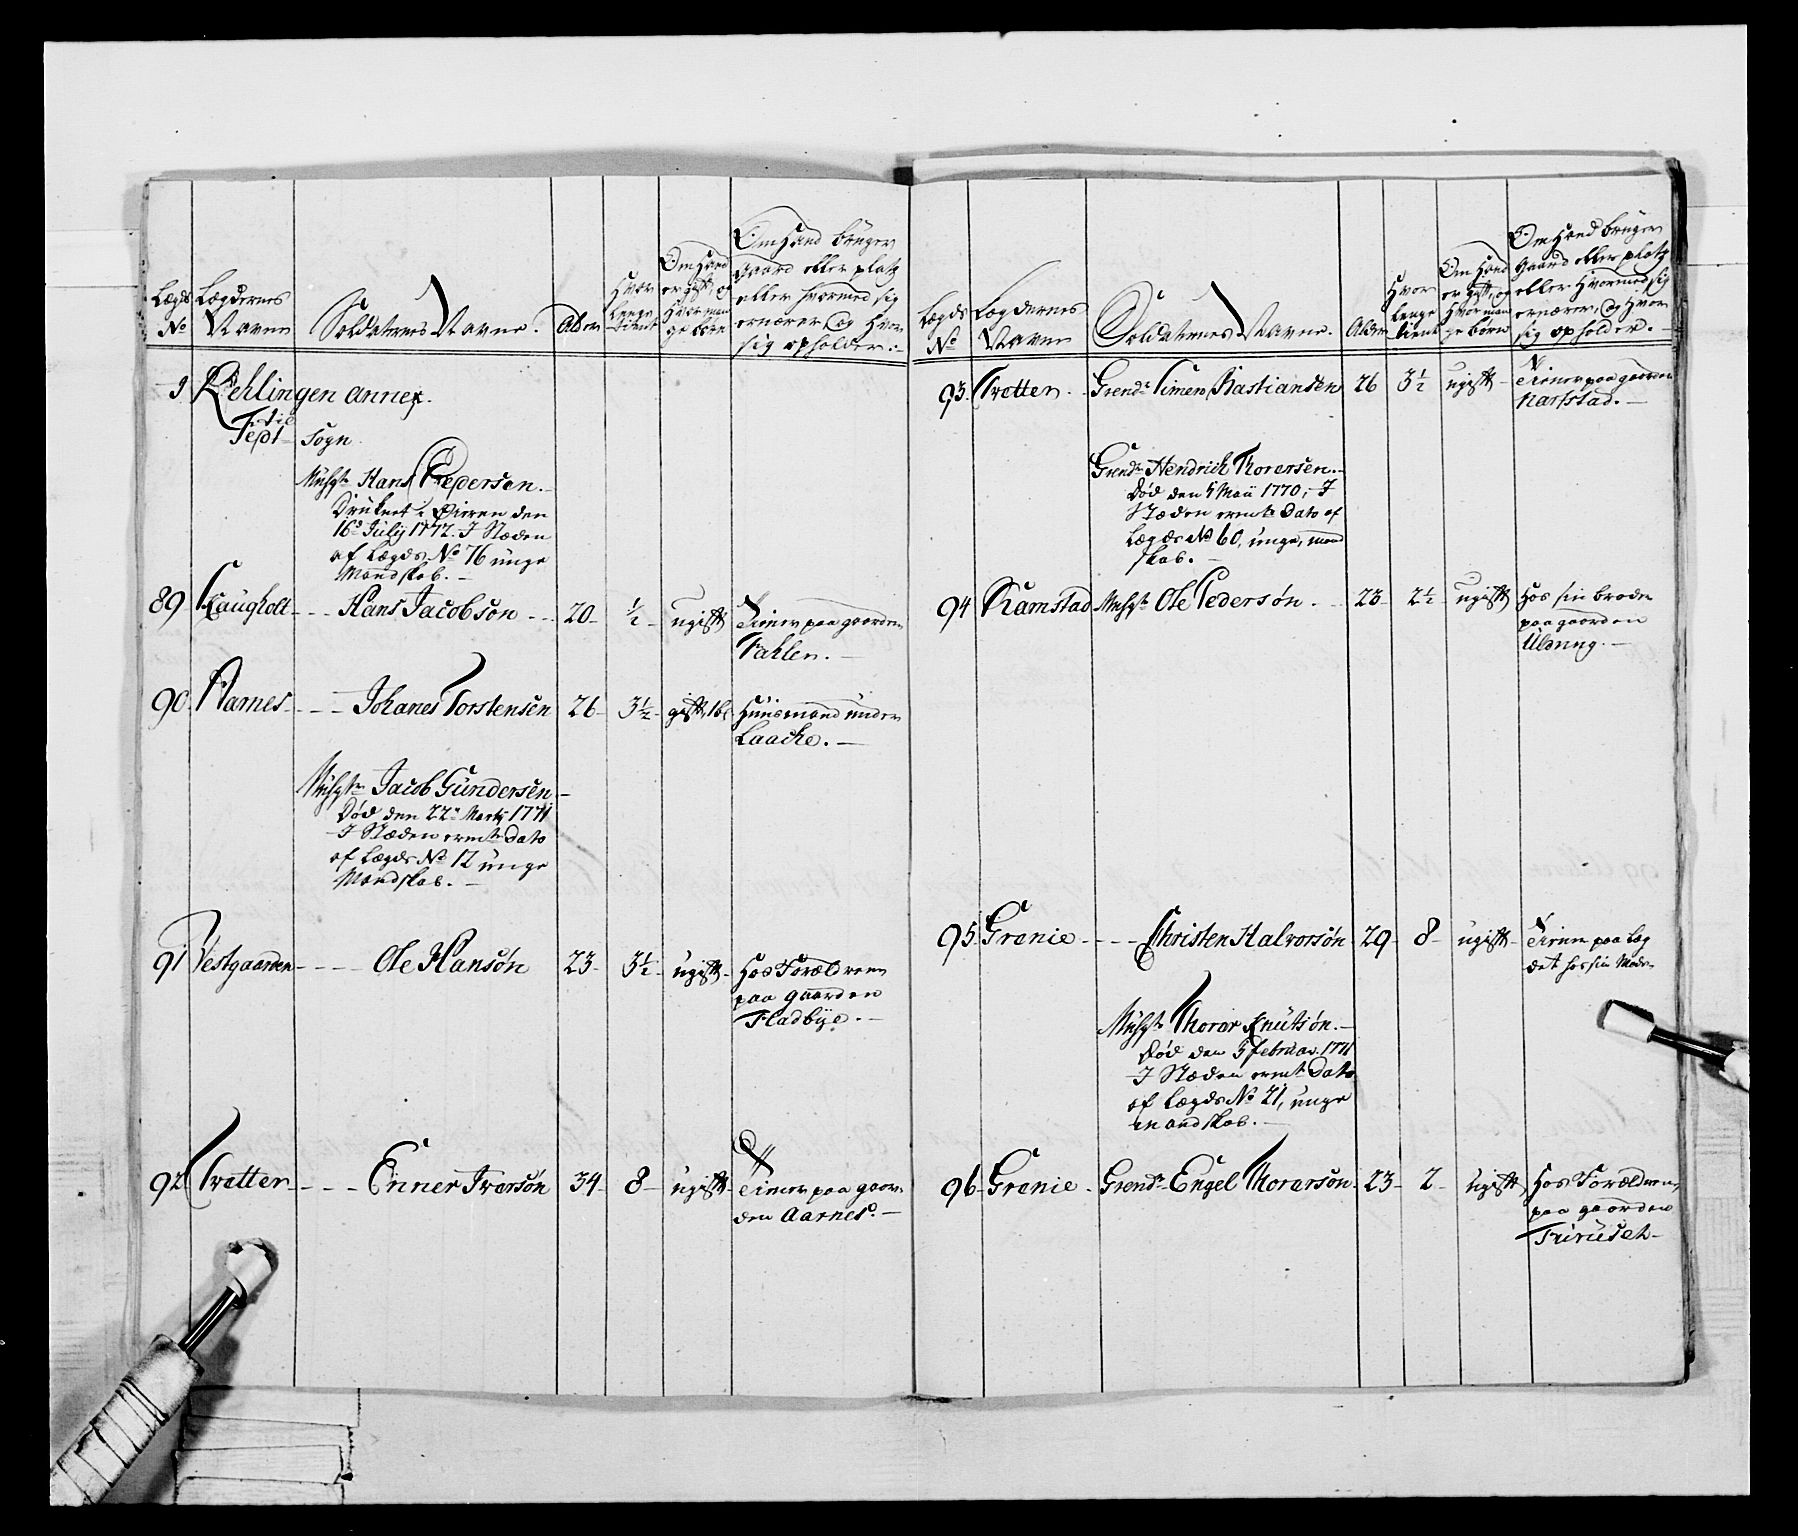 Lægds
No
Lægdernes
Navne
Soldaternes Navne.
Alder
Hvor
Lenge
tient
Om Hand
er gift, og
Hvor man
ge børn
Om Hand bruger
gaard eller platz
eller hvormed sig
ernærer, og hvor
sig opholder:
9 Rehlingen annex
til
Feedt Sogn
Musqt: Hans Pedersen.
Druknet i Øieren den
16d July 1772. I Stæden
af Lægds No 76 unge
Mandskab.
89 Haugholt Hans Jacobsøn 20 ½ ugift Tiener paa gaarden
Fahlen.
90 Aarnes Johanes Torstensen 26 3½ gift, 1 b: Huusmand under
Laache.
Musqt: Jacob Gundersen
Død den 22de Marty 1771
I Stæden ermte Dato
af Lægds No 12 unge
Mandskab.
91 Vestgaarden Ole Hansøn 23 3½ ugift Hos Forældrene
paa gaarden
Fladbye.
92 Tvetter Enner Iversøn 34 8 ugift Tiener paa gaar-
den Aarnes.
Lægds
No
Lægdernes
Navne
Soldaternes Navne.
Alder
Hvor
lenge
tient
Om Hand
er gift, og
Hvor man
ge børn
Om Hand bruger
gaard eller platz
eller Hvormed sig
ernærer, og Hvor
sig opholder.
93 Tvetter Grend: Simen Bastiansen 26 3½ ugift Tiener paa gaarden
Karlstad.
Grend: Hendrich Thorersen.
Død den 5 Maii 1770, I
Stæden ermte Dato af
Lægds No 60, unge, mand
skab.
94 Ramstad Musqt: Ole Pedersøn. 23 2½ ugift Hos sin broder
paa gaarden
Ulving.
95 Grenie Christen Halvorsøn 29 8 ugift Tiener paa Læg
det hos sin Moder
Musqt: Thorer Knutsøn.
Død den 5 februar. 1771
I Stæden ermte Dato
af Lægds No 21, unge
mandskab.
96 Grenie Grend: Engel Thorersøn 23 2 ugift Hos Forældrene,
paa gaarden
Fruruset